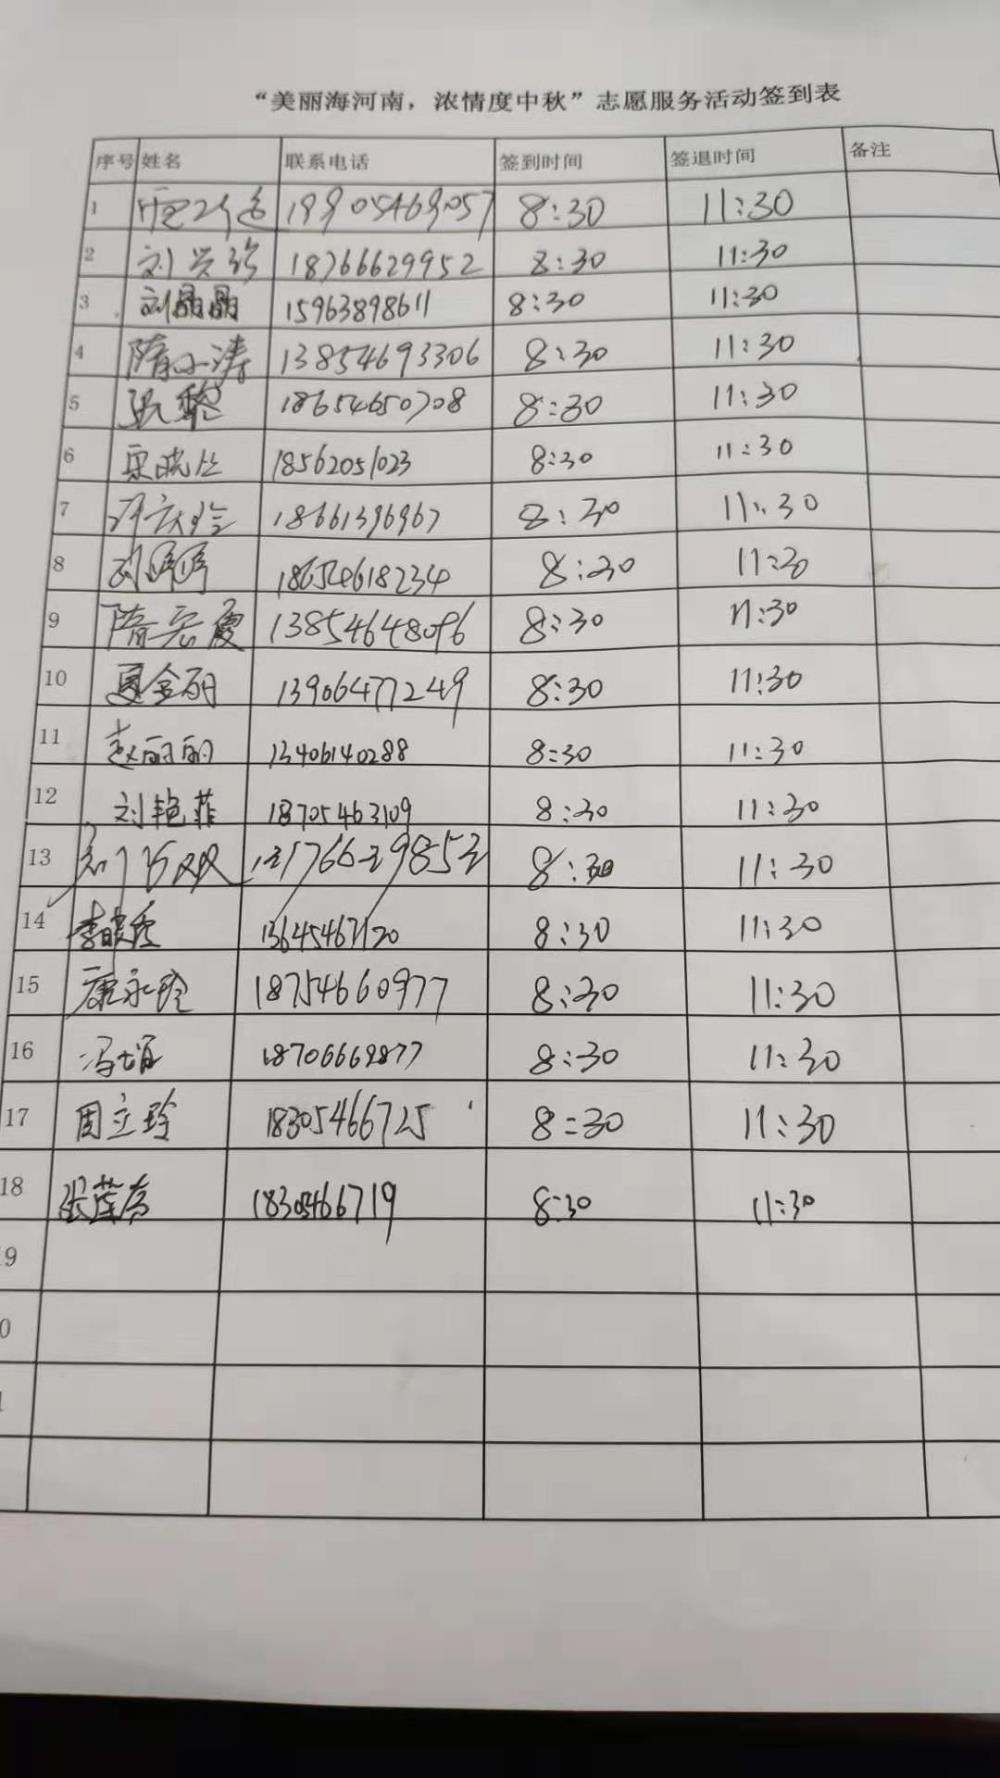 “美丽海河南，浓情度中秋”志愿服务活动签到表
序号 姓名 联系电话 签到时间 签退时间 备注
1 19905469057 8:30 11:30
2 刘兴珍 18766629952 8:30 11:30
3 刘晶晶 15963898611 8:30 11:30
4 隋小涛 13854693306 8:30 11:30
5 张黎 18654650708 8:30 11:30
6 18562051023 8:30 11:30
7 18661396967 8:30 11:30
8 刘婷婷 18654618234 8:30 11:30
9 隋宏霞 13854648096 8:30 11:30
10 夏金丽 13906477249 8:30 11:30
11 赵丽丽 13406140288 8:30 11:30
12 刘艳菲 18705463109 8:30 11:30
13 8:30 11:30
14 李晓霞 13645467120 8:30 11:30
15 康永玲 18754660977 8:30 11:30
16 冯娟 18706669877 8:30 11:30
17 周立玲 18305466725 8:30 11:30
18 张莲芳 18305466719 8:30 11:30
9
0